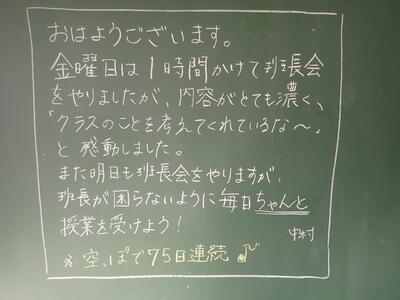 おはようございます。
金曜日は1時間かけて班長会
をやりましたが、内容がとても濃く、
「クラスのことを考えてくれているな〜」
と感動しました。
また明日も班長会をやりますが、
班長が困らないように毎日ちゃんと
授業を受けよう!
中村
※空っぽで75日連続♪